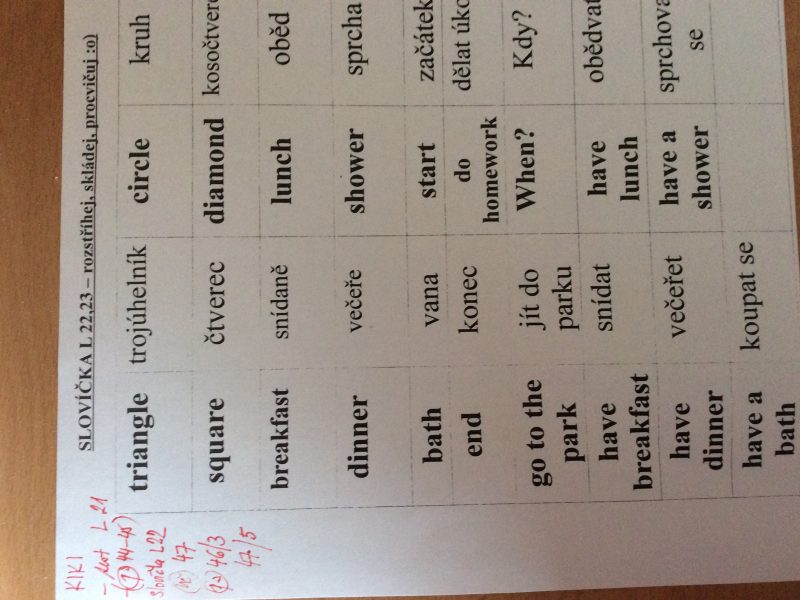 KIKI
L 21
44-45
L22
47
46/3
47/5
SLOVÍČKA L 22,23 – rozstříhej, skládej, procvičuj :o)
triangle trojúhelník circle kruh
square čtverec diamond kosočtvere
breakfast snídaně lunch oběd
dinner večeře shower sprcha
bath vana start začátek
end konec do homework dělat úko
go to the park jít do parku When? Kdy?
have breakfast snídat have lunch obědvat
have dinner večeřet have a shower sprchova se
have a bath koupat se